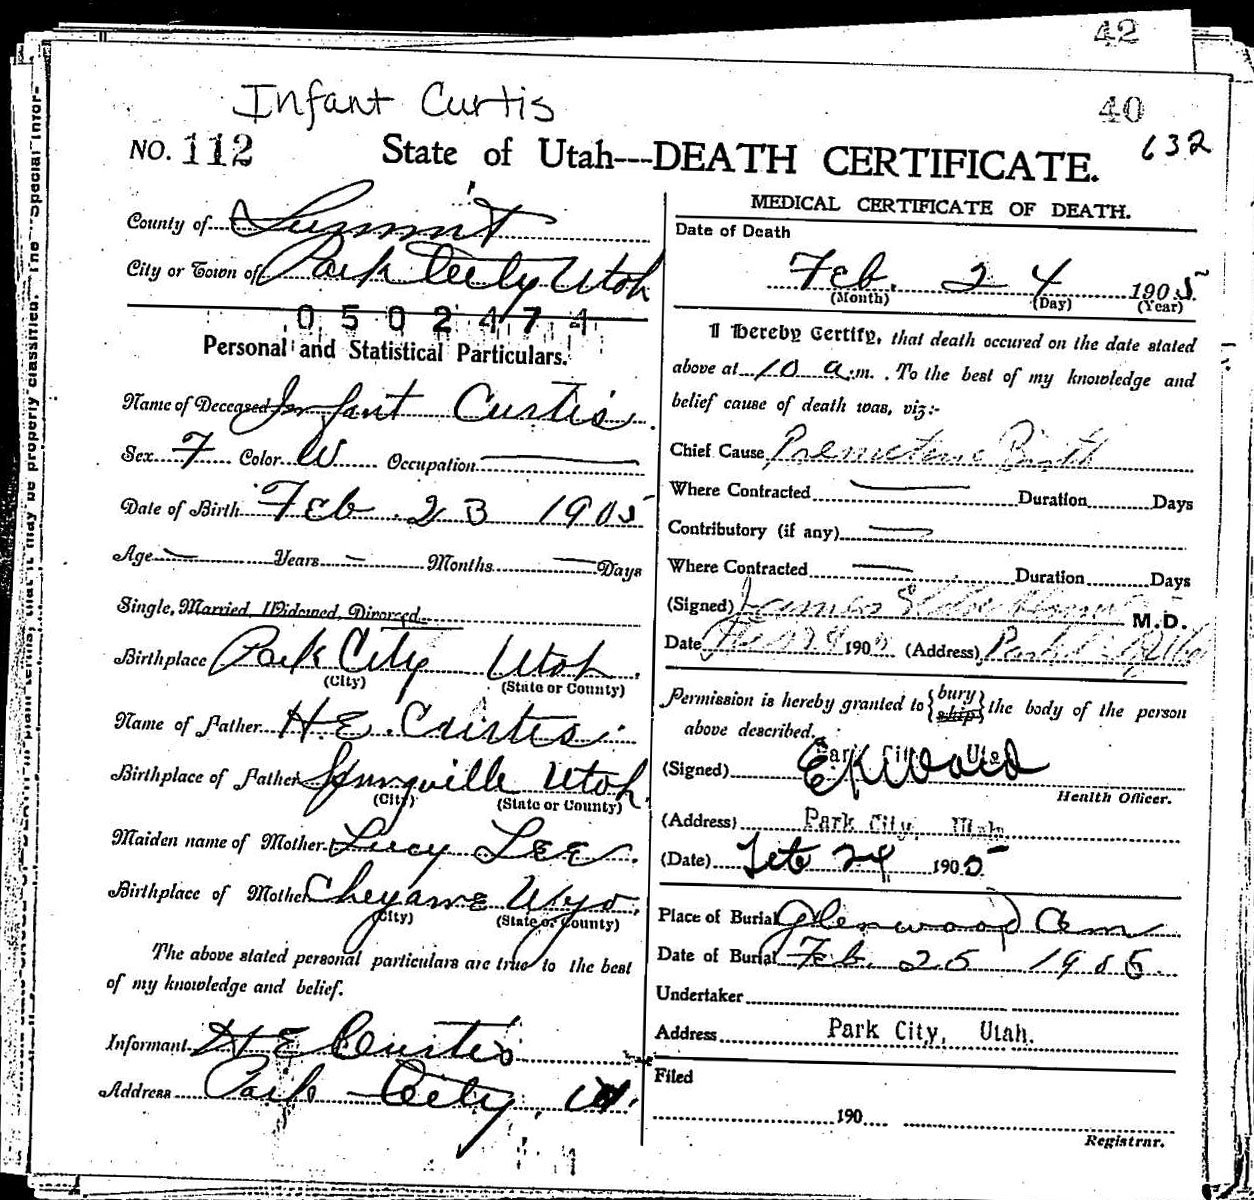 42
Infant Curtis
40
632
NO. 112 State of Utah---DEATH CERTIFICATE.
County of Summit
City or Town of Park City Utah
0502474
Personal and Statistical Particulars.
Name of Deceased Infant Curtis
Sex F Color W Occupation
Date of Birth Feb. 23 1905
Age Years Months Days
Single, Married, Widowed, Divorced
Birthplace Park City Utah
(City) (State or County)
Name of Father H E. Curtis
Birthplace of Father Springville Utah
(City) (State or County)
Maiden name of Mother Lucy Lee
Birthplace of Mother Cheyanne Wyo.
(City) (State or County)
The above stated personal particulars are true to the best
of my knowledge and belief.
Informant H E Curtis
Address Park City, Ut.
MEDICAL CERTIFICATE OF DEATH.
Date of Death
Feb. 24 1905
(Month) (Day) (Year)
I hereby Certify, that death occured on the date stated
above at 10 a.m. To the best of my knowledge and
belief cause of death was, viz:-
Chief Cause Premature Birth
Where Contracted Duration Days
Contributory (if any)
Where Contracted Duration Days
(Signed) James M.D.
Date 24 190 (Address) Park City
Permission is hereby granted to {bury ship} the body of the person
above described.
Park City Utah
(Signed)
Health Officer.
(Address) Park City, Utah
(Date) Feb 24 1905
Place of Burial Glenwood Cem
Date of Burial Feb. 25 1905.
Undertaker
Address Park City, Utah.
Filed
190
Registrar.